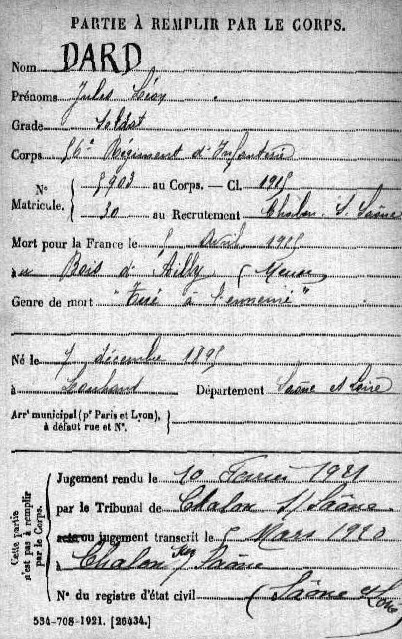 PARTIE À REMPLIR PAR LE CORPS.
Nom DARD
Prénoms Jules Léon
Grade Soldat
Corps 56e Régiment d'Infanterie
N° Matricule. { 5903 au Corps. — Cl. 1915
30 au Recrutement Chalon s. Saône
Mort pour la France le 5 Avril 1915
à au Bois d'Ailly (Meuse)
Genre de mort "Tué à l'ennemi"
Né le 7 décembre 1895
à Louhans Département Saône et Loire
Arr† municipal (pr Paris et Lyon), à défaut rue et N°. }
Cette partie n'est pas à remplir par le Corps.
Jugement rendu le 10 Février 1921
par le Tribunal de Chalon s/ Saône
acte ou jugement transcrit le Mars
à Chalon sur Saône
N° du registre d'état civil (Saône et Loire
534-708-1921. [26434.]